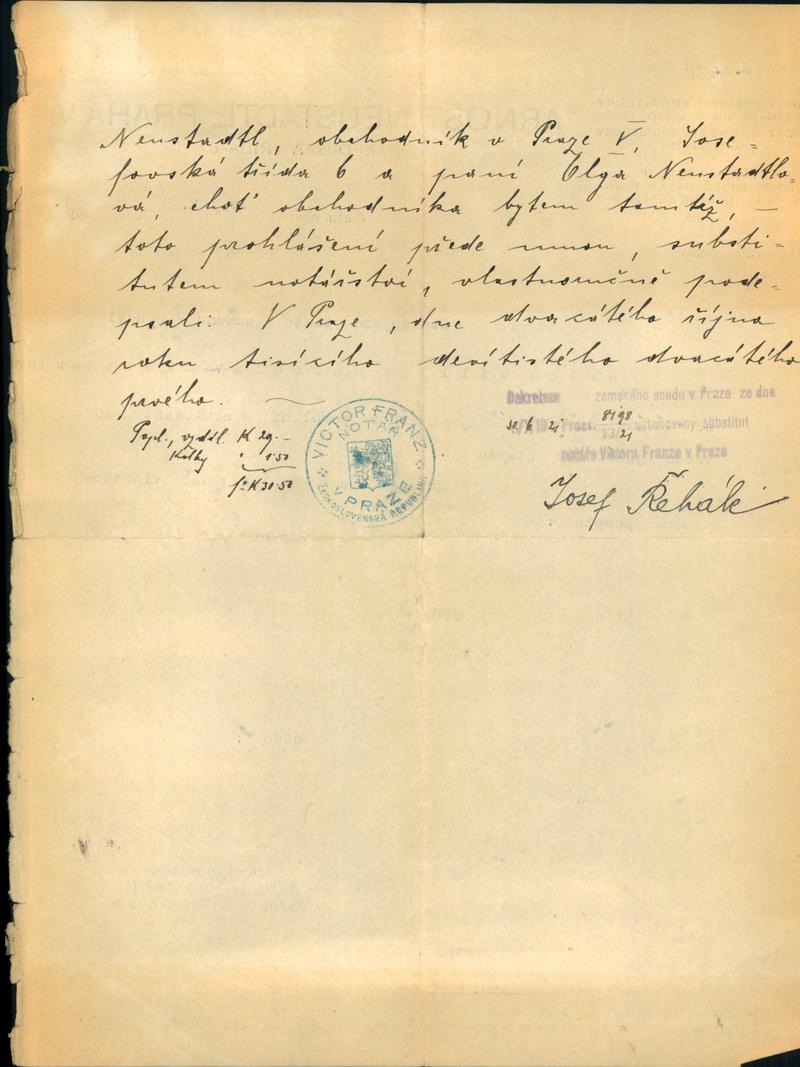 Neustadtl, obchodník v Praze V, Jose=
fovská třída 6 a paní Olga Neustadtlo-
vá, choť obchodníka bytem tamtéž, —
toto prohlášení přede mnou, substi-
tutem notářství, vlastnoručně pode-
psali. V Praze, dne dvacátého října
roku tisícího devítistého dvacátého
prvého.
Dekretem zemského soudu v Praze ze dne
30/6 21 Praes. 8198 ustanovený substitut
13/21
notáře Viktora Franze v Praze
Popl., vyděl. K 29.-
Kolky " 1.50
K 30.50
VICTOR FRANZ
NOTÁŘ
V PRAZE
ČESKOSLOVENSKÁ REPUBLIKA
Josef Řehák